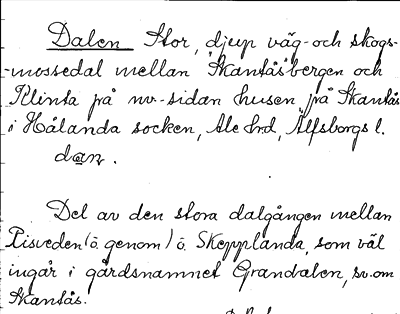 Dalen Stor, djup väg- och skogs-
-mossedal mellan Skantåsbergen och
Klinta på nv.-sidan husen på Skantås
i Hålanda socken, Ale hrd, Älfsborgs l.
dạn.
Del av den stora dalgången mellan
Risveden (ö. genom) ö. Skepplanda, som väl
ingår i gårdsnamnet Grandalen, sv. om
Skantås.